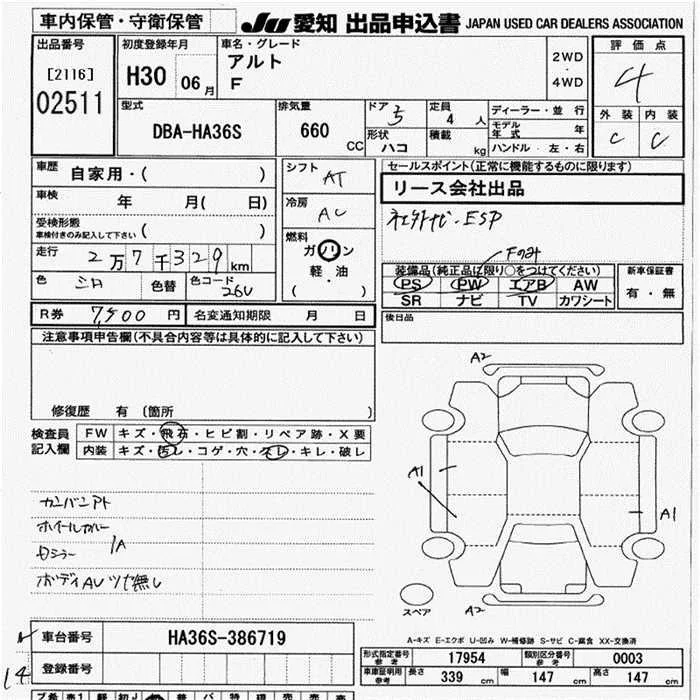 車内保管・守衛保管
JU 愛知 出品申込書 JAPAN USED CAR DEALERS ASSOCIATION
出品番号
[2116]
02511
初度登録年月
H30 06月
車名・グレード
アルト
F
2WD
・
4WD
評価点
4
外装 内装
C C
型式
DBA-HA36S
排気量
660 CC
ドア 5
形状 ハコ
定員 4 人
積載 kg
ディーラー・並行
モデル年式 年
ハンドル・左・右
車歴 自家用・( )
車検 年 月( 日)
受検形態
車検付きのみ記入して下さい ( )
走行 2万7千329km
色 シロ 色替 色コード 26U
シフト AT
冷房 AC
燃料
ガソリン
軽・油
( )
セールスポイント(正常に機能するものに限ります)
リース会社出品
ESP
Fのみ
装備品(純正品に限り○をつけてください)
PS PW エアB AW
SR ナビ TV カワシート
新車保証書
有・無
R券 7,500 円 名変通知期限 月 日
後日品
注意事項申告欄(不具合内容等は具体的に記入して下さい)
修復歴 有 (箇所 )
検査員記入欄
FW キズ・飛石・ヒビ割・リペア跡・X要
内装 キズ・汚レ・コゲ・穴・スレ・キレ・破レ
カンバンアト
ホイールカバー
1A
ボディAUツヤ無し
A2
A1
A1
A2
スペア
A-キズ E-エクボ U-凹み W-補修跡 S-サビ C-腐食 XX-交換済
車台番号 HA36S-386719
登録番号
14
形式指定番号 参考 17954 類別区分番号 参考 0003
車庫証明用 参考 長さ 339 cm 幅 147 cm 高さ 147 cm